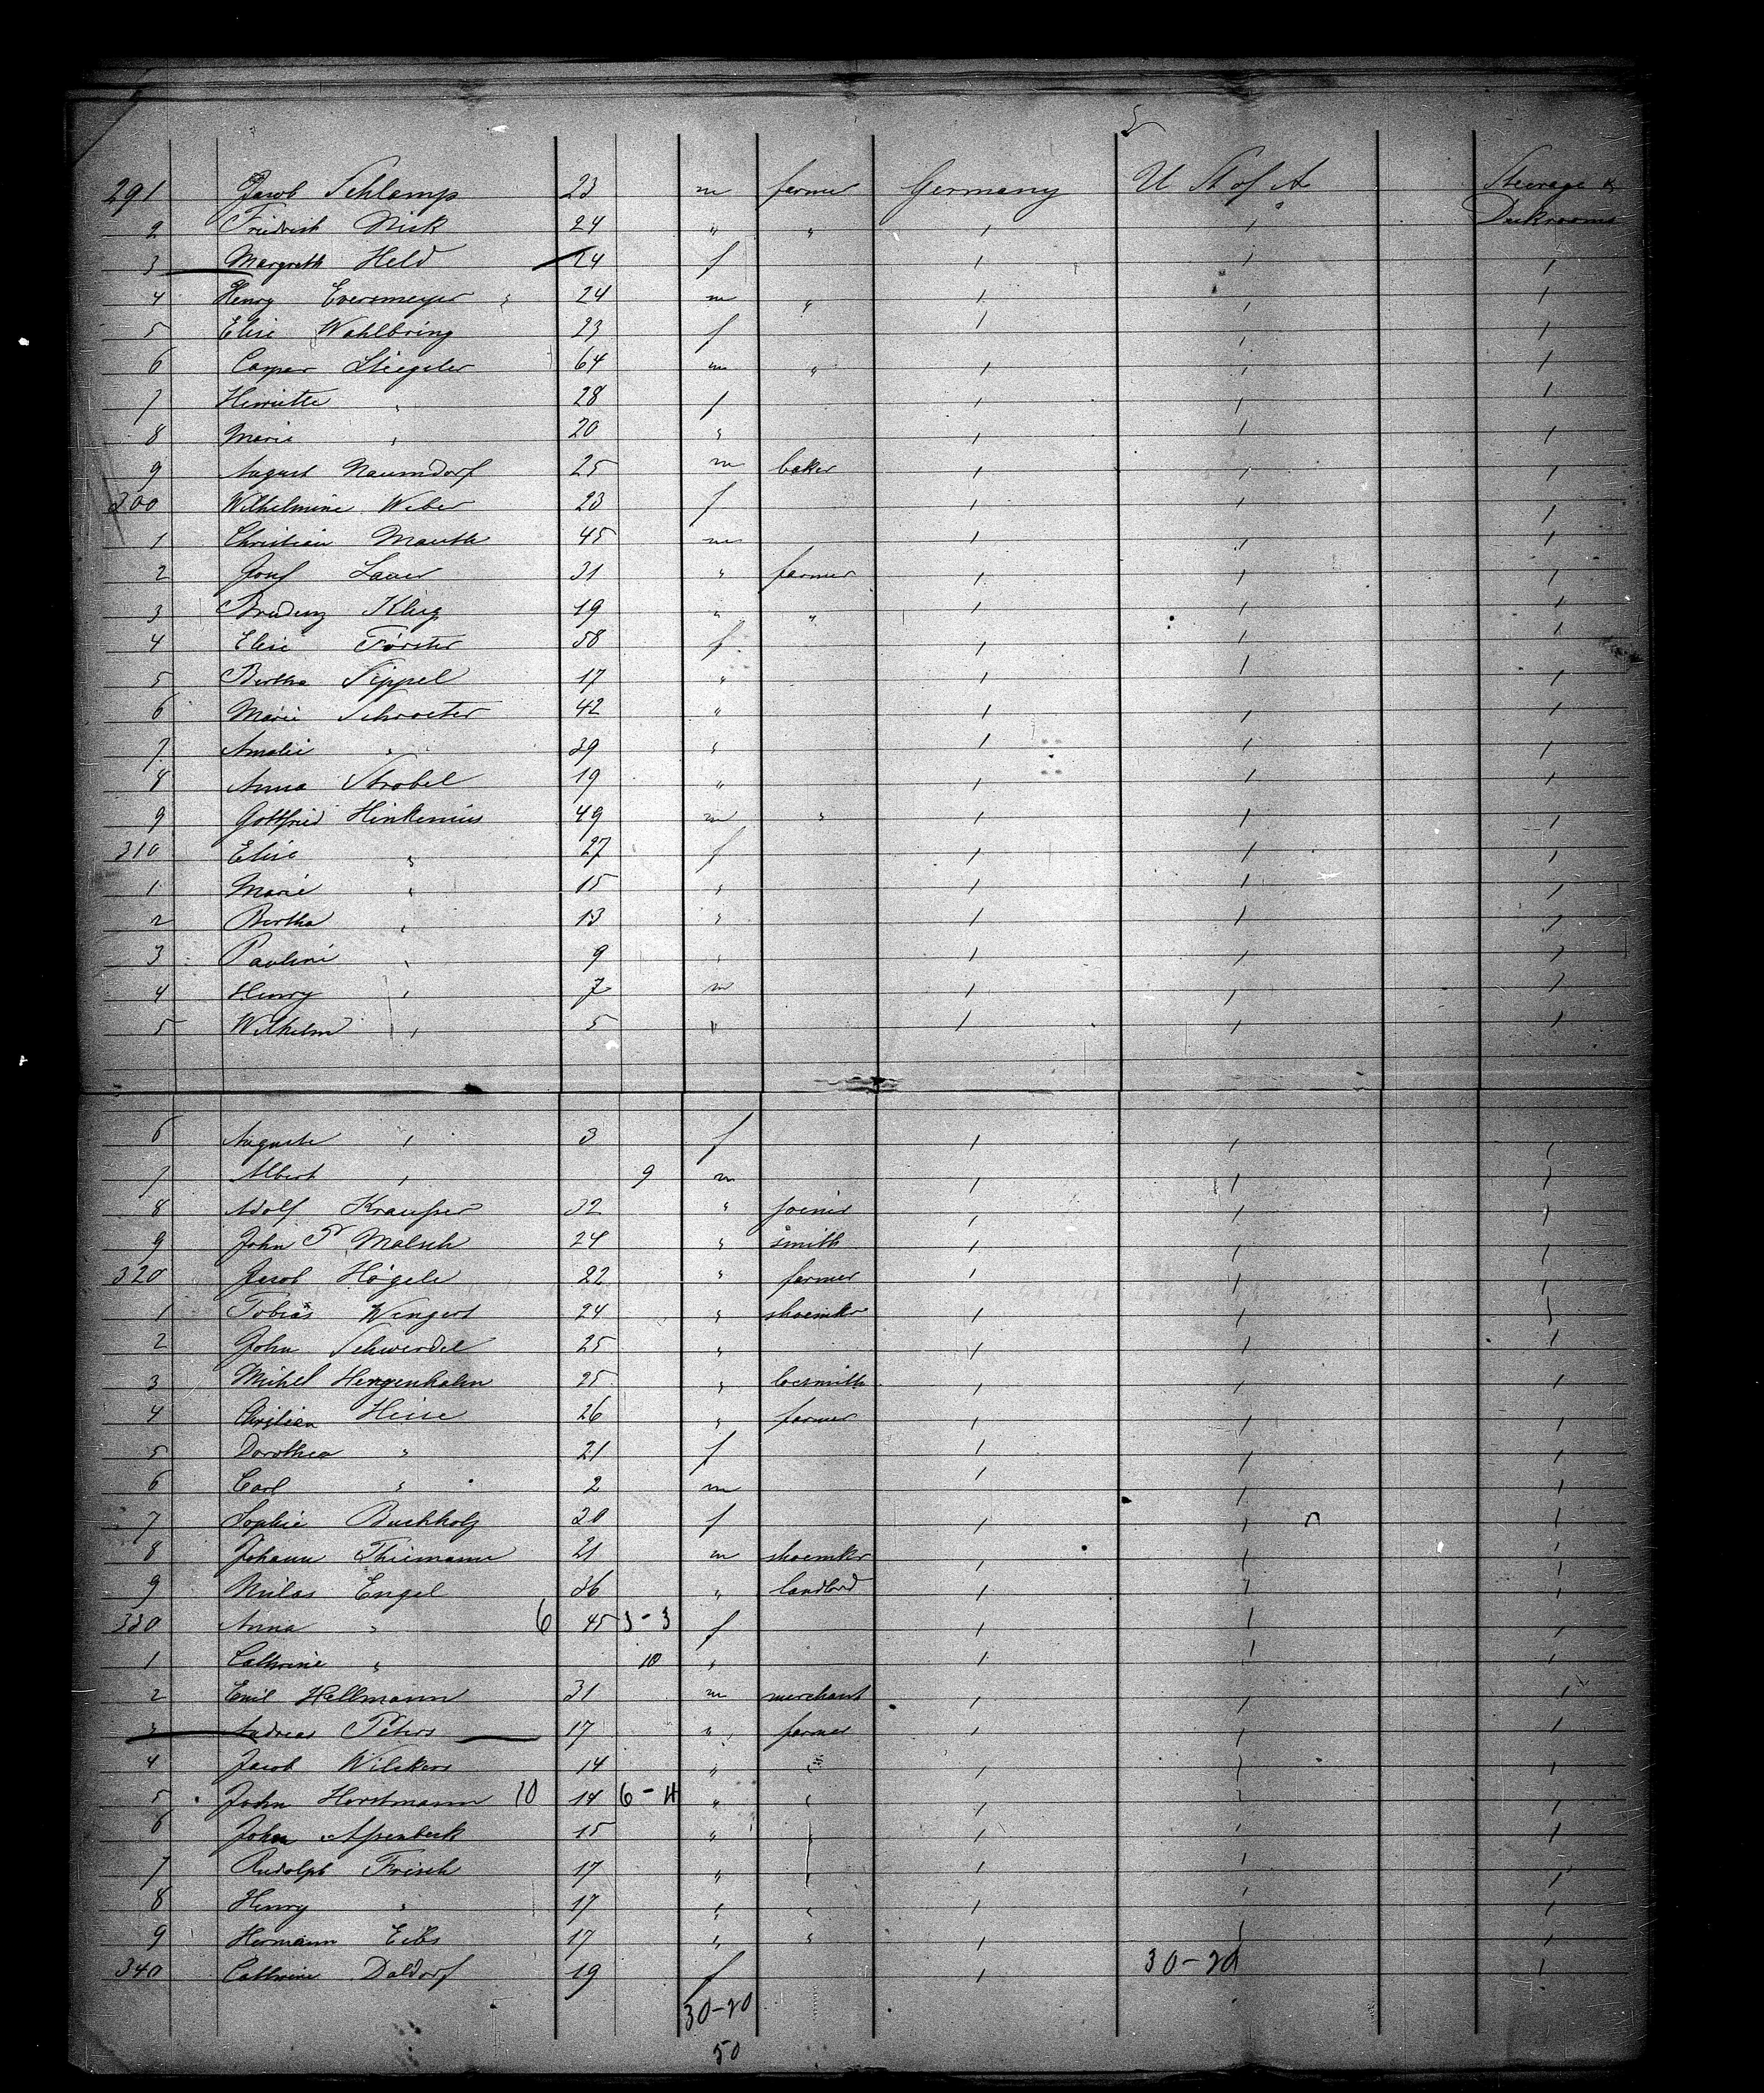 5
291 Jacob Schlamp 23 m farmer Germany U St of A Steerage &
2 Friedrich Nick 24 " " ' ' Deckrooms
3 Margreth Held 24 f ' ' '
4 Henry Eversmeyer 24 m " ' ' '
5 Elise Wahlbring 23 f ' ' '
6 Casper Stiegeler 64 m " ' ' '
7 Henriette " 28 f ' ' '
8 Marie " 20 " ' ' '
9 August Naumdorf 25 m baker ' ' '
300 Wilhelmine Weber 23 f ' ' '
1 Christian Mauth 45 m ' ' '
2 Josef Lauer 31 " farmer ' ' '
3 Klug 19 " " ' ' '
4 Elise Förster 58 f ' ' '
5 Bertha Sippel 17 " ' ' '
6 Marie Schroeter 42 " ' ' '
7 Amalie " 39 " ' ' '
8 Anna Strobel 19 " ' ' '
9 Gottfried Hinkenius 49 m " ' ' '
310 Elise " 27 f ' ' '
1 Marie " 15 " ' ' '
2 Bertha " 13 " ' ' '
3 Pauline " 9 " ' ' '
4 Henry " 7 m ' ' '
5 Wilhelm " 5 " ' ' '
6 Auguste " 3 f ' ' '
7 Albert " 9 m ' ' '
8 Adolf Kraußer 32 " joiner ' ' '
9 John P Malsch 24 " smith ' ' '
320 Jacob Högele 22 " farmer ' ' '
1 Tobias Wingert 24 " shoemkr ' ' '
2 John Schwerdel 25 " ' ' '
3 Michel Hergenhahn 25 " locsmith ' ' '
4 Christian Heise 26 " farmer ' ' '
5 Dorothea " 21 f ' ' '
6 Carl " 2 m ' ' '
7 Sophie Buchholz 20 f ' ' '
8 Johann Thiemann 21 m shoemkr ' ' '
9 Niclas Engel 36 " landlord ' ' '
330 Anna " 6 45 3-3 f ' ' '
1 Cathrine " 10 " ' ' '
2 Emil Hellmann 31 m merchant ' ' '
3 Andreas Peters 17 " farmer ' ' '
4 Jacob Wilckens 14 " " ' ' '
5 John Horstmann 10 14 6-4 " " ' ' '
6 John Aßenbeck 15 " " ' ' '
7 Rudolph Frisch 17 " " ' ' '
8 Henry " 17 " " ' ' '
9 Hermann Eibs 17 " " ' ' '
340 Cathrine Daldorf 19 f ' 30-20 '
30-20
50